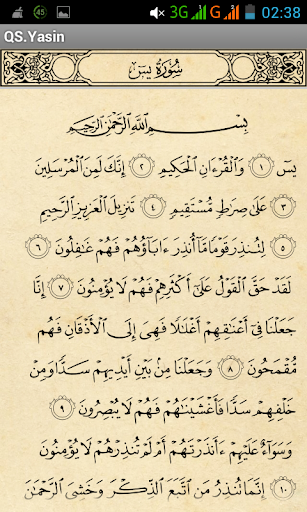 45 3G G 02:38
QS.Yasin
سُورَةُ يسٓ
بِسْمِ ٱللَّهِ ٱلرَّحْمَٰنِ ٱلرَّحِيمِ
يسٓ ١ وَٱلْقُرْءَانِ ٱلْحَكِيمِ ٢ إِنَّكَ لَمِنَ ٱلْمُرْسَلِينَ
٣ عَلَىٰ صِرَٰطٍ مُّسْتَقِيمٍ ٤ تَنزِيلَ ٱلْعَزِيزِ ٱلرَّحِيمِ
٥ لِتُنذِرَ قَوْمًا مَّآ أُنذِرَ ءَابَآؤُهُمْ فَهُمْ غَٰفِلُونَ ٦
لَقَدْ حَقَّ ٱلْقَوْلُ عَلَىٰٓ أَكْثَرِهِمْ فَهُمْ لَا يُؤْمِنُونَ ٧ إِنَّا
جَعَلْنَا فِىٓ أَعْنَٰقِهِمْ أَغْلَٰلًا فَهِىَ إِلَى ٱلْأَذْقَانِ فَهُم
مُّقْمَحُونَ ٨ وَجَعَلْنَا مِنۢ بَيْنِ أَيْدِيهِمْ سَدًّا وَمِنْ
خَلْفِهِمْ سَدًّا فَأَغْشَيْنَٰهُمْ فَهُمْ لَا يُبْصِرُونَ ٩
وَسَوَآءٌ عَلَيْهِمْ ءَأَنذَرْتَهُمْ أَمْ لَمْ تُنذِرْهُمْ لَا يُؤْمِنُونَ
١٠ إِنَّمَا تُنذِرُ مَنِ ٱتَّبَعَ ٱلذِّكْرَ وَخَشِىَ ٱلرَّحْمَٰنَ